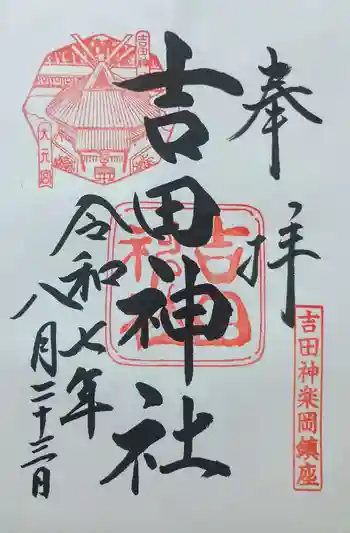 奉拝
吉田神社
令和七年
八月二十三日
吉田神社
大元宮
吉田神楽岡鎮座